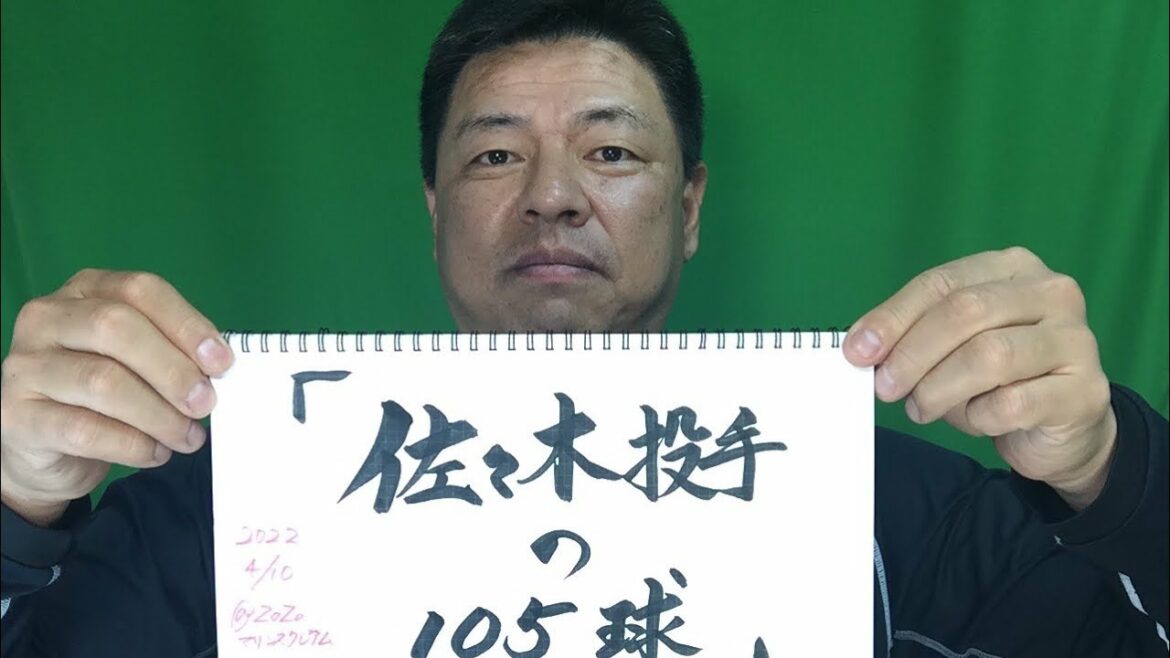 「佐々木投手
の
105球
2022
4/10
@ZOZO
マリンスタジアム